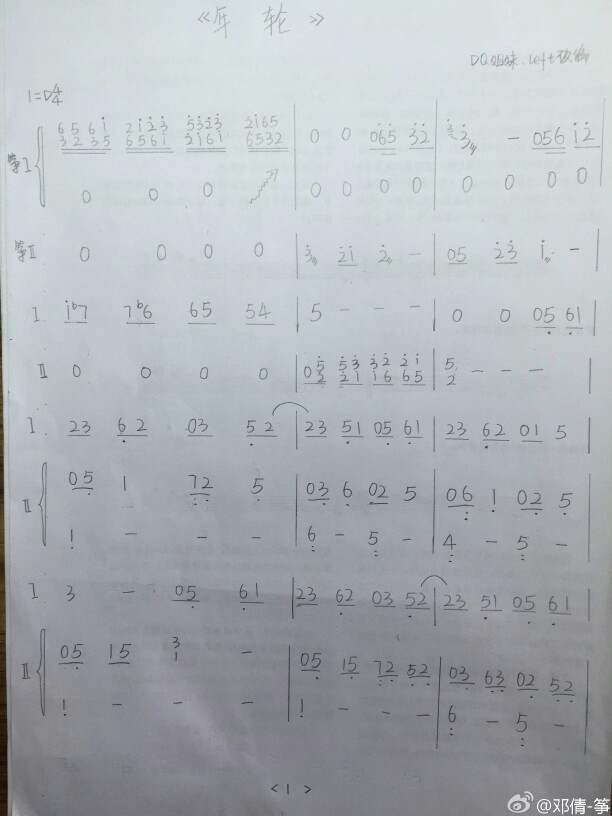 《年轮》
DQ姐妹.Loft改编
1=D 4/4
筝I 6561 2123 5323 2165 | 0 0 065 32 | 3 - 056 12
3235 6561 2161 6532
0 0 0 | 0 0 0 0 | 0 0 0 0
筝II 0 0 0 0 | 3 21 2 - | 05 23 1 -
I 1b7 7b6 65 54 | 5 - - - | 0 0 05 61
II 0 0 0 0 | 05 53 32 21 | 5 - - -
2 21 16 65 | 2
I 23 62 03 52 | 23 51 05 61 | 23 62 01 5
II 05 1 72 5 | 03 6 02 5 | 06 1 02 5
1 - - - | 6 - 5 - | 4 - 5 -
I 3 - 05 61 | 23 62 03 52 | 23 51 05 61
II 05 15 3 - | 05 15 72 52 | 03 63 02 52
1
1 - - - | 1 - - - | 6 - 5 -
<1>
@邓倩-筝